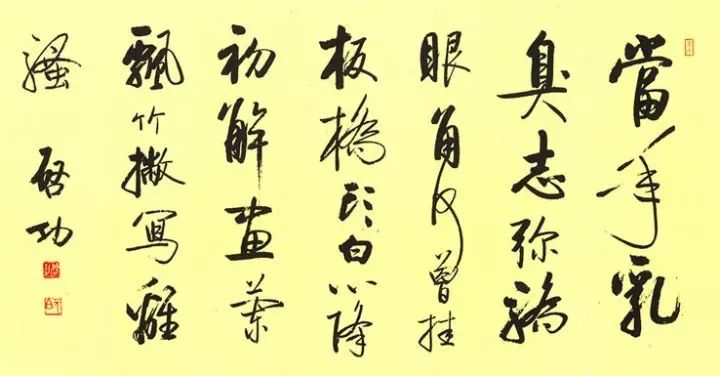 當年乳
臭志弥驕
眼角何曾挂
板橋頭白心降
初解畫蘭
飄竹撇寫離
騷
啓功